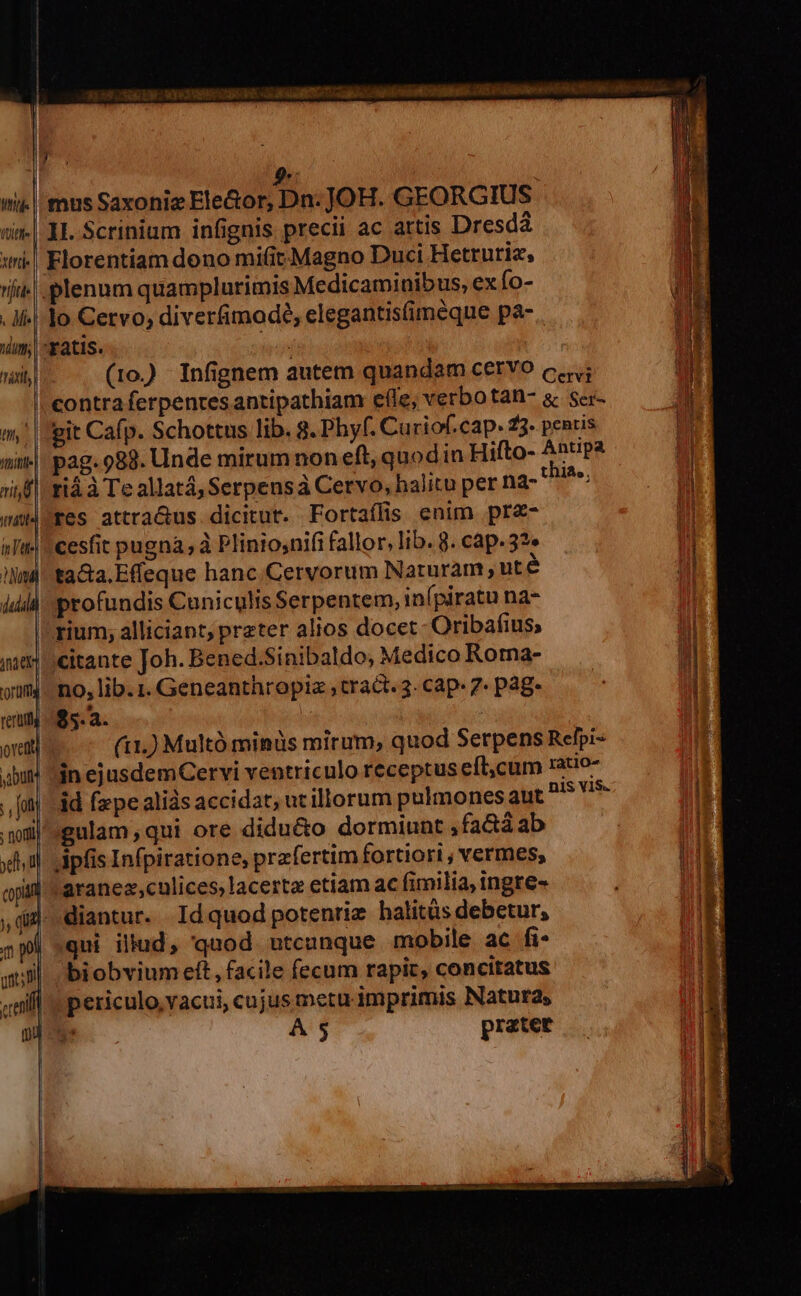 9.
mus Saxoniæ Elector, Dn. JOH. GEORGIUS
II. Scrinium inſignis precii ac artis Dresdâ
Florentiam dono miſit Magno Duci Hetruriæ,
plenum quamplurimis Medicaminibus, ex ſo-
lo Cervo, diverſimodè, elegantisſimèque pa-
ratis.
(10.) Inſignem autem quandam cervo
Cervi
contra ſerpentes antipathiam eſſe, verbo tan-
& Ser-
git Caſp. Schottus lib. 8. Phyſ. Curioſ. cap. 23.
pentis
pag. 988. Unde mirum non eſt, quod in Hiſto-
Antipa
riâ à Te allatâ, Serpens à Cervo, halitu per na-
thia.
res attractus dicitur. Fortaſſis enim præ-
cesſit pugna, à Plinio, niſi fallor, lib. 8. cap. 32.
tacta. Eſſeque hanc Cervorum Naturam, ut è
profundis Cuniculis Serpentem, inſpiratu na-
rium, alliciant, præter alios docet Oribaſius,
citante Joh. Bened. Sinibaldo, Medico Roma-
no, lib. 1. Geneanthropiæ, tract. 3. cap. 7. pag.
85. a.
(11.) Multò minùs mirum, quod Serpens
Reſpi-
in ejusdem Cervi ventriculo receptus eſt, cum
ratio-
id ſæpe aliàs accidat, ut illorum pulmones aut
nis vis.
gulam, qui ore diducto dormiunt, factâ ab
ipſis Inſpiratione, præſertim fortiori, vermes,
araneæ, culices, lacertæ etiam ac ſimilia, ingre-
diantur. Id quod potentiæ halitûs debetur,
qui illud, quod utcunque mobile ac ſi-
bi obvium eſt, facile ſecum rapit, concitatus
periculo, vacui, cujus metu imprimis Natura,
A 5 præter